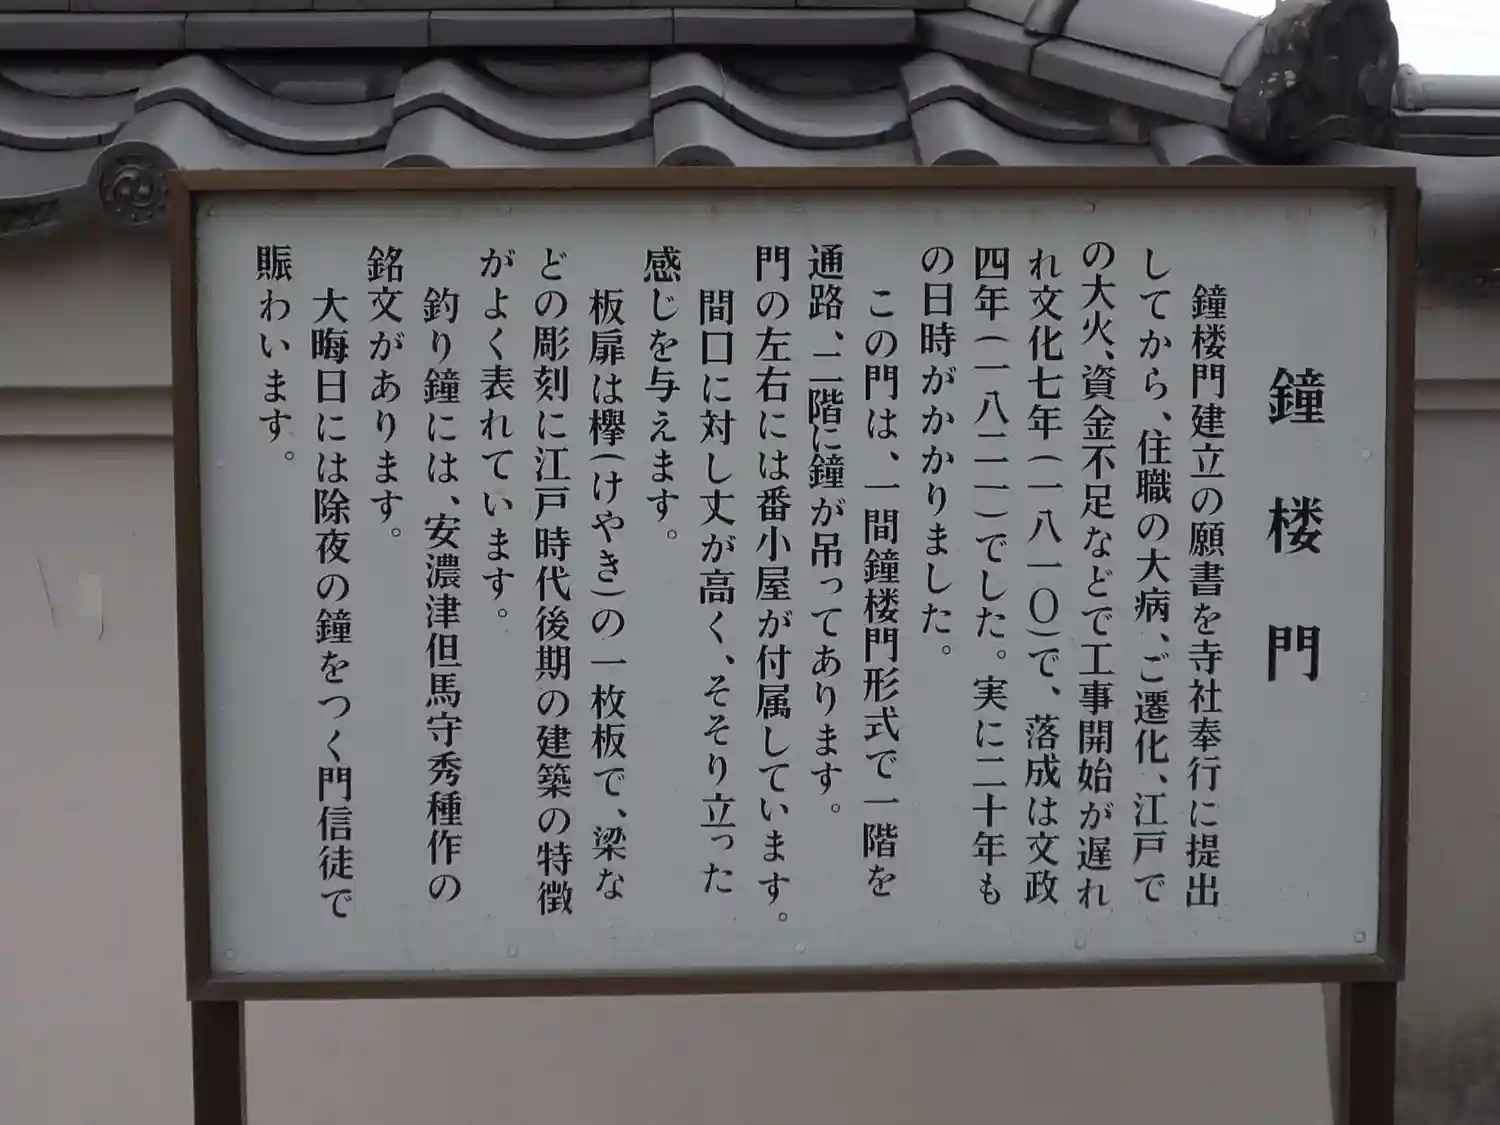 鐘楼門
鐘楼門建立の願書を寺社奉行に提出
してから、住職の大病、ご遷化、江戸で
の大火、資金不足などで工事開始が遅れ
れ文化七年(一八一〇)で、落成は文政
四年(一八二一)でした。実に二十年も
の日時がかかりました。
この門は、一間鐘楼門形式で一階を
通路、二階に鐘が吊ってあります。
門の左右には番小屋が付属しています。
間口に対し丈が高く、そそり立った
感じを与えます。
板扉は欅(けやき)の一枚板で、梁な
どの彫刻に江戸時代後期の建築の特徴
がよく表れています。
釣り鐘には、安濃津但馬守秀種作の
銘文があります。
大晦日には除夜の鐘をつく門信徒で
賑わいます。